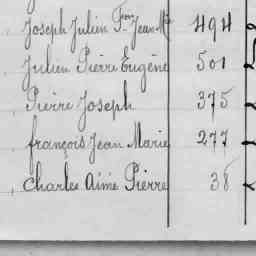 Joseph Julien F.çois Jean Mie 494
Julien Pierre Eugène 501
Pierre Joseph 375
françois Jean Marie 277
Charles Aimé Pierre 38